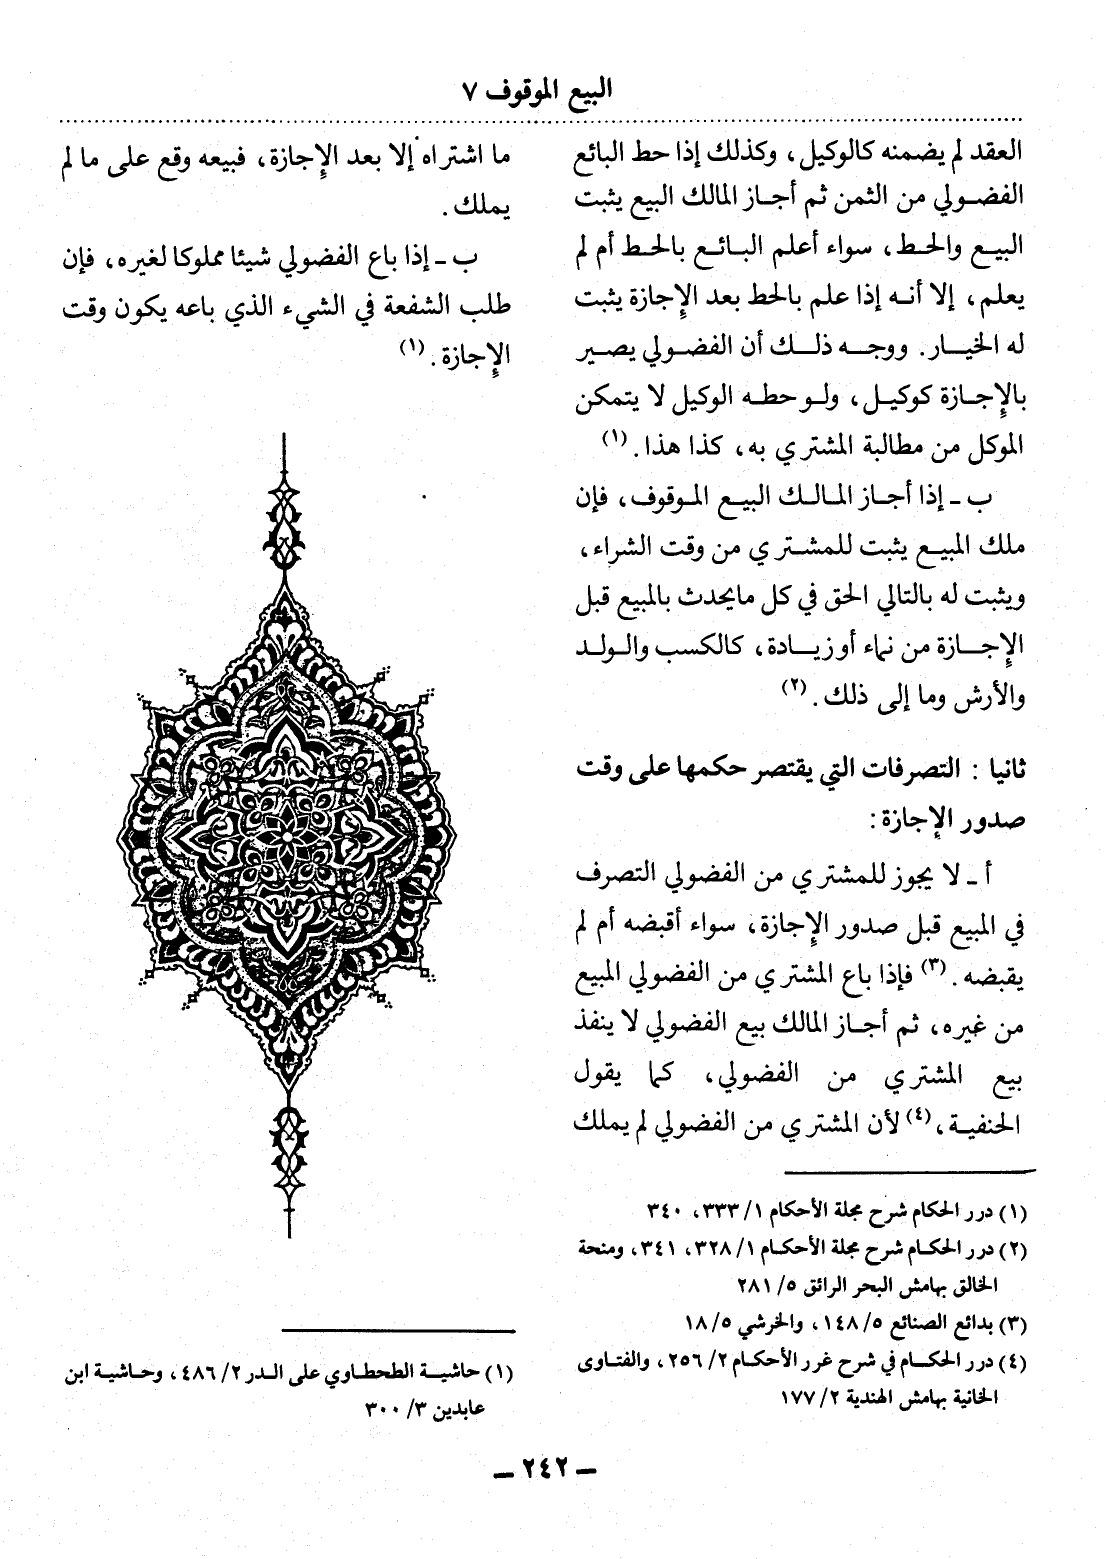 البيع الموقوف ٧
العقد لم يضمنه كالوكيل، وكذلك إذا حط البائع
الفضولي من الثمن ثم أجاز المالك البيع يثبت
البيع والحط، سواء أعلم البائع بالحط أم لم
يعلم، إلا أنه إذا علم بالحط بعد الإجازة يثبت
له الخيار. ووجه ذلك أن الفضولي يصير
بالإجازة كوكيل، ولو حطه الوكيل لا يتمكن
الموكل من مطالبة المشتري به، كذا هذا. (١)
ب ـ إذا أجاز المالك البيع الموقوف، فإن
ملك المبيع يثبت للمشتري من وقت الشراء،
ويثبت له بالتالي الحق في كل مايحدث بالمبيع قبل
الإجازة من نماء أو زيادة، كالكسب والولد
والأرش وما إلى ذلك. (٢)
ثانيا : التصرفات التي يقتصر حكمها على وقت
صدور الإجازة:
أ ـ لا يجوز للمشتري من الفضولي التصرف
في المبيع قبل صدور الإجازة، سواء أقبضه أم لم
يقبضه. (٣) فإذا باع المشتري من الفضولي المبيع
من غيره، ثم أجاز المالك بيع الفضولي لا ينفذ
بيع المشتري من الفضولي، كما يقول
الحنفية، (٤) لأن المشتري من الفضولي لم يملك
(١) درر الحكام شرح مجلة الأحكام ١/ ٣٣٣، ٣٤٠
(٢) درر الحكام شرح مجلة الأحكام ١/ ٣٢٨، ٣٤١، ومنحة
الخالق بهامش البحر الرائق ٥/ ٢٨١
(٣) بدائع الصنائع ٥/ ١٤٨، والخرشي ٥/ ١٨
(٤) درر الحكام في شرح غرر الأحكام ٢/ ٢٥٦، والفتاوى
الخانية بهامش الهندية ٢/ ١٧٧
ما اشتراه إلا بعد الإجازة، فبيعه وقع على ما لم
يملك.
ب ـ إذا باع الفضولي شيئا مملوكا لغيره، فإن
طلب الشفعة في الشيء الذي باعه يكون وقت
الإجازة. (١)
(١) حاشية الطحطاوي على الدر ٢/ ٤٨٦، وحاشية ابن
عابدين ٣/ ٣٠٠
ـ ٢٤٢ ـ